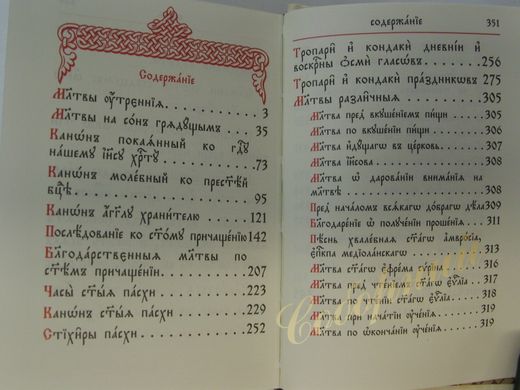 Содержа́нїе
Мл҃твы оу҆́треннїѧ . . . . . . . . . 3
Мл҃твы на со́нъ грѧдꙋ́щымъ . . 35
Канѡ́нъ покаѧ́нный ко гдⷭ҇ꙋ
нашемꙋ і҆и҃сꙋ хрⷭ҇тꙋ̀ . . . . . . . . . 73
Канѡ́нъ моле́бный ко прест҃ѣ́й
бцⷣѣ . . . . . . . . . 95
Канѡ́нъ а҆́гг҃лꙋ храни́телю . . . . 121
Послѣ́дованїе ко ст҃о́мꙋ причаще́нїю 142
Бл҃года́рственныѧ мл҃твы по
ст҃ѣ́мъ причаще́нїи . . . . . . . 207
Часы̀ ст҃ы́ѧ па́схи . . . . . . 223
Канѡ́нъ ст҃ы́ѧ па́схи . . . . . 229
Стїхи̑ры па́схи . . . . . . . . 252
содержа́нїе 351
Тропарѝ и҆ кондакѝ дне́внїи и҆
воскрⷭ҇ны ѻ҆смѝ гласѡ́въ . . . . . . . . 256
Тропарѝ и҆ кондакѝ пра́здникѡвъ 275
Мл҃твы разли́чныѧ . . . . . . . . 305
Мл҃тва пред̾ вкꙋше́нїемъ пи́щи . . . 305
Мл҃тва по вкꙋше́нїи пи́щи . . . . . 306
Мл҃тва и҆дꙋ́щагѡ въ це́рковь . . . . 306
Мл҃тва і҆и҃сова . . . . . . . . . 308
Мл҃тва ѡ҆ дарова́нїи внима́нїѧ на
мл҃твѣ . . . . . . . . . 308
Пред̾ нача́ломъ всѧ́кагѡ до́брагѡ дѣ́ла 309
Благодаре́нїе ѡ҆ полꙋче́нїи проше́нїѧ . . 311
Пѣ́снь хвале́бнаѧ ст҃а́гѡ а҆мвро́сїа
є҆пⷭ҇кпа медїола́нскагѡ . . . . . . . 313
Мл҃тва ст҃а́гѡ є҆фре́ма сѵ́рина . . . . 316
Мл҃тва пред̾ чте́нїемъ ст҃а́гѡ є҆ѵⷢ҇лїа . . 316
Мл҃тва по чте́нїи ст҃а́гѡ є҆ѵⷢ҇лїа . . 318
Мл҃тва при нача́тїи оу҆че́нїѧ . . 319
Мл҃тва по ѡ҆конча́нїи оу҆че́нїѧ . . . 319